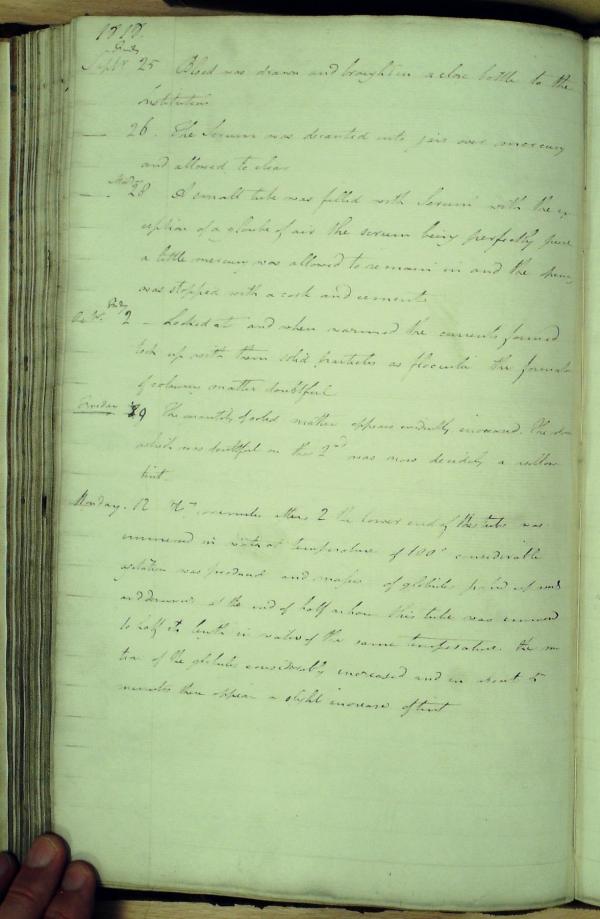 1818.
Friday
Septr 25 Blood was drawn and brought in a close bottle to the
Institution
— 26. The Serum was decanted into jars over mercury
and allowed to clear
— Mon 28 A small tube was filled with Serum with the ex
ception of a globule of air the serum being perfectly pure
a little mercury was allowed to remain in and the
was stopped with a cork and cement
Octr. Friday 2 – Looked at and when warmed the currents formed
took up with them solid particles as flocculi the formation
of colouring matter doubtful
Friday 9 The quantity of solid matter appears evidently increased. The
which was doubtful on the 2nd was now decidedly a yellow
tint
Monday. 12 minutes after 2 the lower end of the tube was
immersed in water at temperature of 100° considerable
agitation was produced and masses of globules passed up and
and downwards at the end of half an hour this tube was immersed
to half its length in water of the same temperature. the mo
tion of the globules considerably increased and in about 5
minutes there appear a slight increase of tint